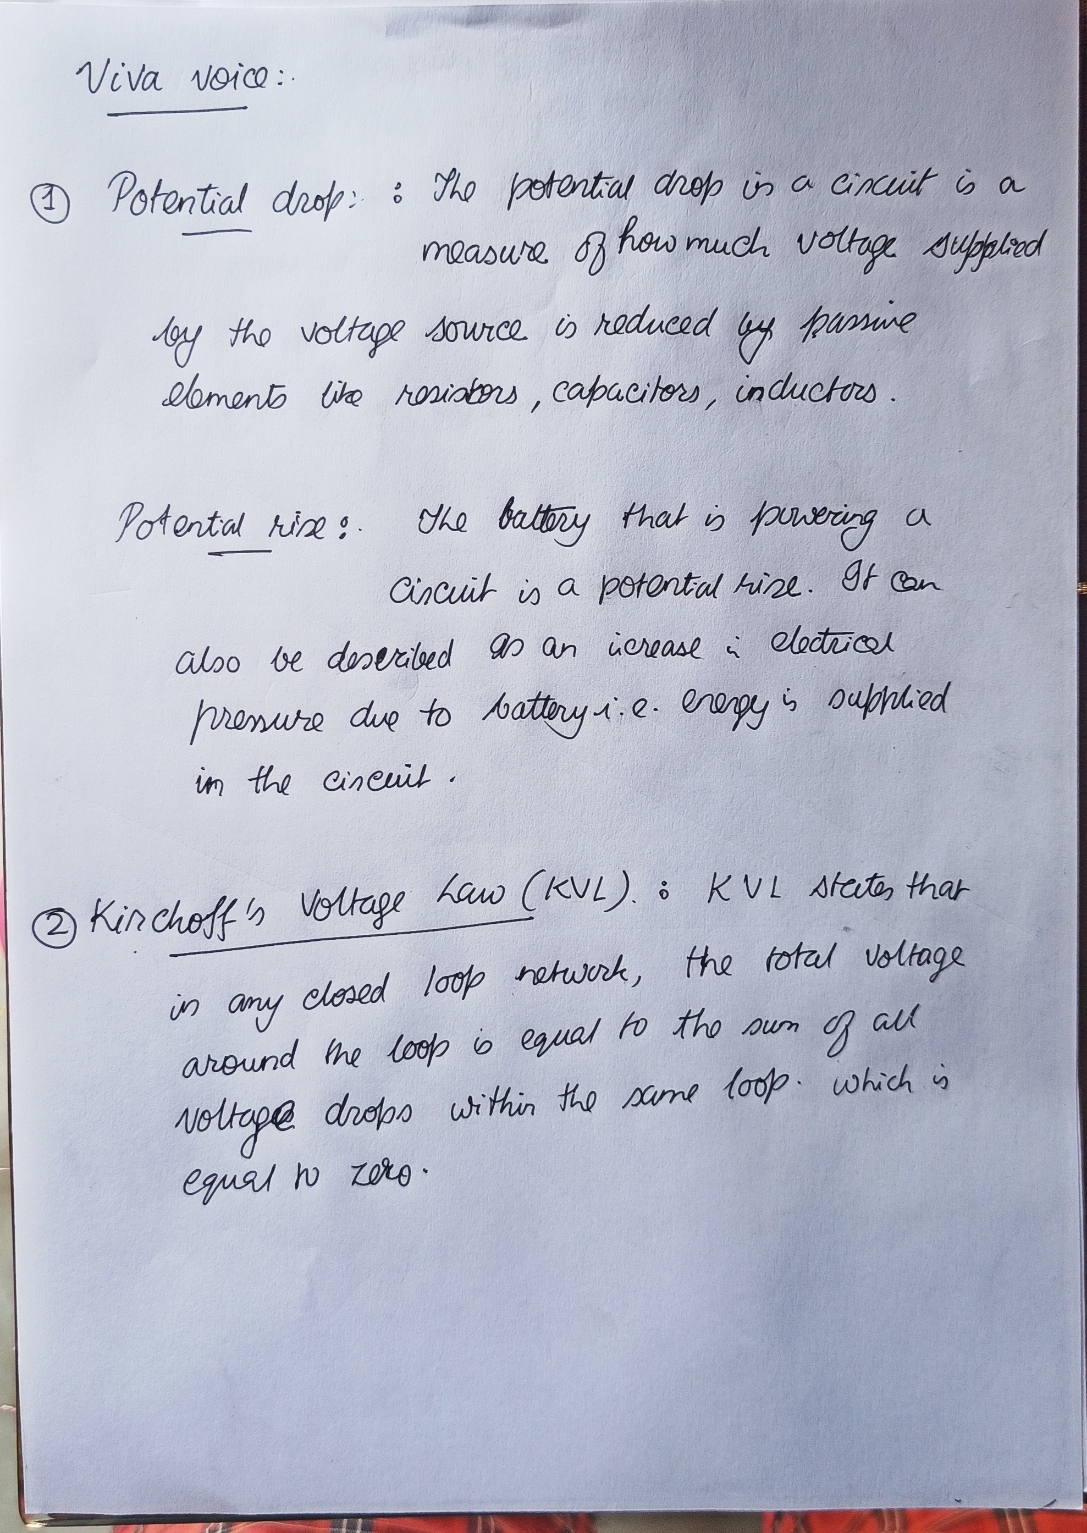 Viva voice:
① Potential drop: : The potential drop in a circuit is a
measure of how much voltage supplied
by the voltage source is reduced by passive
elements like resistors, capacitors, inductors.
Potential rise : The battery that is powering a
circuit is a potential rise. It can
also be described as an icrease i electrical
pressure due to battery i.e. energy is supplied
in the circuit.
② Kirchoff's Voltage Law (KVL). : KVL states that
in any closed loop network, the total voltage
around the loop is equal to the sum of all
voltage drops within the same loop. which is
equal to zero.